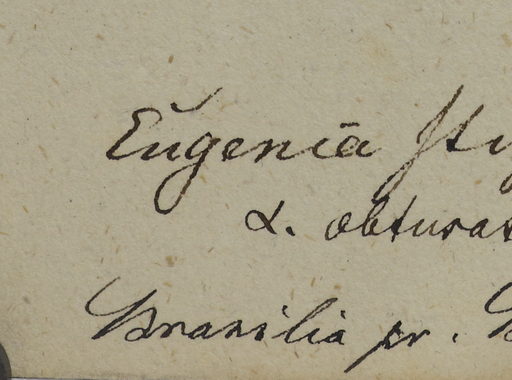 Eugenia
α. obtusat
Brasilia pr.